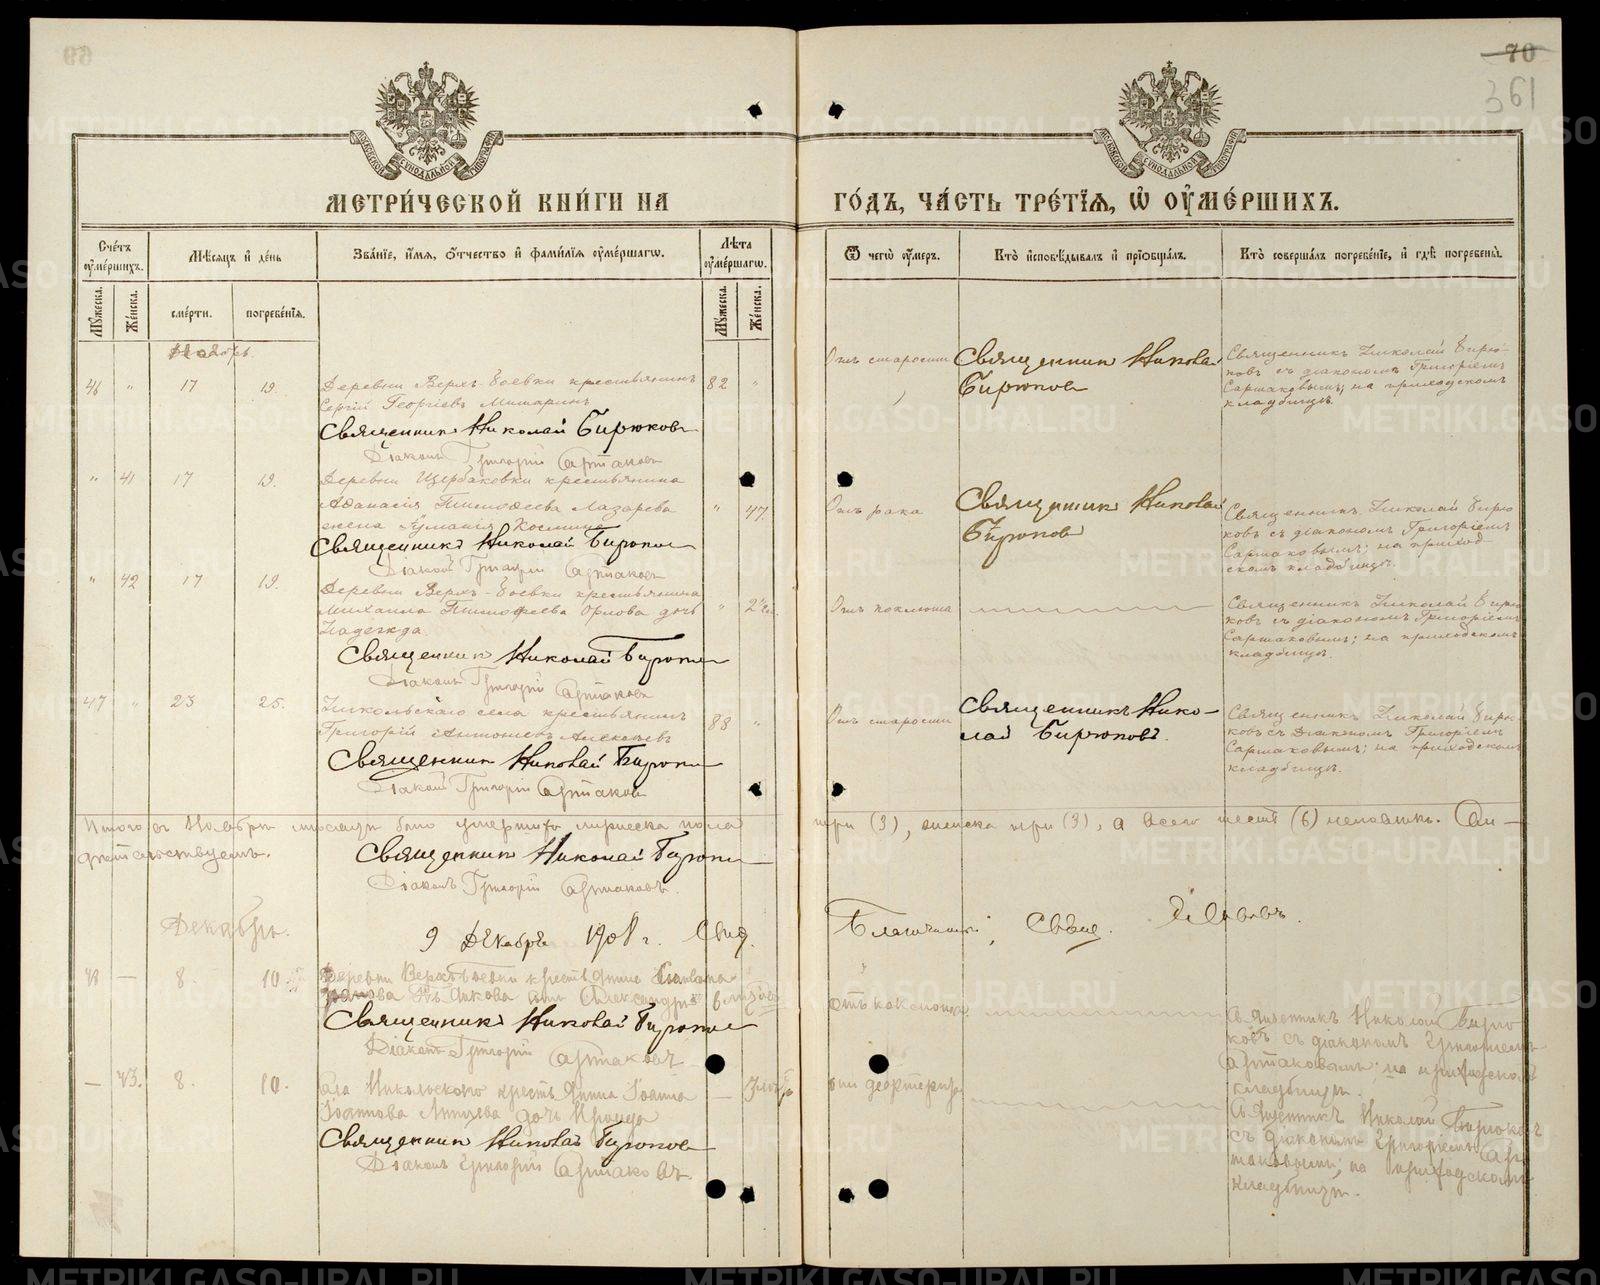 69
70
361
МЕТРИ́ЧЕСКОЙ КНИ́ГИ НА
ГО́ДЪ, ЧА́СТЬ ТРЕ́ТІЯ, Ѿ ОУМЕ́РШИХЪ.
Сче́тъ оуме́ршихъ.
Мѣ́сяцъ и де́нь
Зва́ніе, и́мя, о́тчество и фами́лія оуме́ршагѡ.
Лѣ́та оуме́ршагѡ.
Ѿ чегѡ̀ оу́меръ.
Кто̀ исповѣ́дывалъ и пріобща́лъ.
Кто̀ соверша́лъ погребе́ніе, и гдѣ̀ погребены̀.
Му́жеска.
Же́нска.
сме́рти.
погребе́нія.
Му́жеска.
Же́нска.
Ноябрь.
46 " 17 19. Деревни Верхъ-Боевки крестьянинъ 82 "
Сергій Георгіевъ
Священникъ Николай Бирюковъ
Діаконъ Григорій Сартаковъ
Отъ старости
Священник Никола
Бирюков
Священникъ Николай Бирю-
ковъ съ діакономъ Григоріемъ
Сартаковымъ; на приходскомъ
кладбищѣ.
" 41 17 19. Деревни Щербаковки крестьянина
Аѳанасія Тимоѳеева Лазарева " 47.
жена Космина
Священникъ Николай Бирюков
Діакон Григорій Сартаковъ
Отъ рака
Священник Николай
Бирюков
Священникъ Николай Бирю
ковъ съ діакономъ Григоріемъ
Сартаковымъ; на приход-
скомъ кладбищѣ.
" 42 17 19. Деревни Верхъ-Боевки крестьянина
Михаила Тимофеева Орлова дочь "
Надежда
Священник Николай Бирюков
Діаконъ Григорій Сартаковъ
Отъ коклюша
Священникъ Николай Бирю
ковъ съ діакономъ Григоріемъ
Сартаковымъ; на приходскомъ
кладбищѣ.
47 " 23 25. Никольскаго села крестьянинъ 88 "
Григорій Антоновъ Алексѣевъ
Священник Николай Бирюков
Діакон Григорій Сартаков
Отъ старости
Священникъ Нико-
лай Бирюковъ.
Священникъ Николай Бирю
ковъ съ Діакономъ Григоріемъ
Сартаковымъ; на приходскомъ
кладбищѣ.
Итого въ Ноябрѣ мѣсяцѣ было умершихъ мужеска пола
три (3), женска три (3), а всего шесть (6) человѣкъ. Сви-
дѣтельствуемъ.
Священник Николай Бирюков
Діаконъ Григорій Сартаковъ.
Декабрь.
9 Декабря 1908 г. Свид.
Благочинный, Свящ.
48 — 8. 10. Деревни Верхъ-Боевки крестьянина
Александръ
Священникъ Николай Бирюков
Діаконъ Григорій Сартаковъ
отъ коклюша
Священникъ Николай Бирю
ковъ съ діакономъ Григоріемъ
Сартаковымъ; на приходскомъ
кладбищѣ.
— 43. 8. 10. Села Никольскаго крестьянина Іоанна —
Іоаннова дочь Ираида
Священник Николай Бирюков
Діаконъ Григорій Сартаковъ.
Священникъ Николай Бирюковъ
съ діакономъ Григоріемъ Сар-
таковымъ; на приходскомъ
кладбищѣ.
METRIKI.GASO-URAL.RU